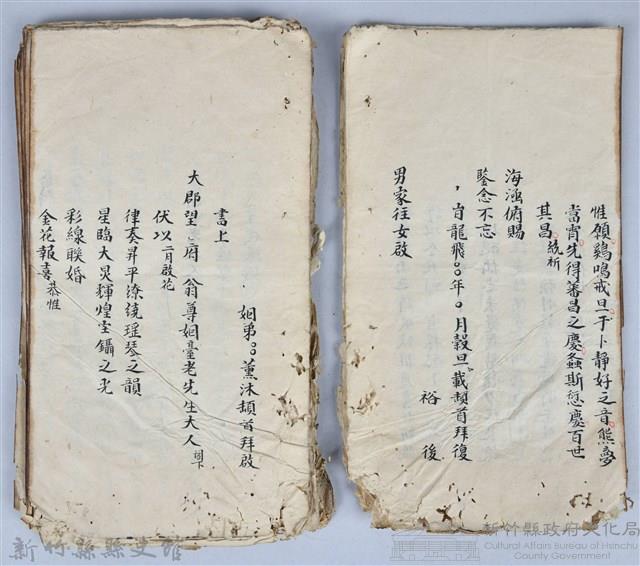 惟願鷄鳴戒旦干卜靜好之音熊夢
當宵先得蕃昌之慶螽斯慶百世
其昌 統祈
海涵俯賜
鑒念不忘
旹龍飛○○年○月穀旦載頓首拜復
裕後
男家往女啟
姻弟○○薰沐頓首拜啟
書上
大郡望府翁尊姻臺老先生大人 閣下
伏以 二月啟花
律奏昇平繚繞瑶琴之韻
星臨大輝煌宝鑷之光
彩線聯婚
金花報喜 恭惟
新竹縣縣史館
新竹縣政府文化局
Cultural Affairs Bureau of Hsinchu
County Government